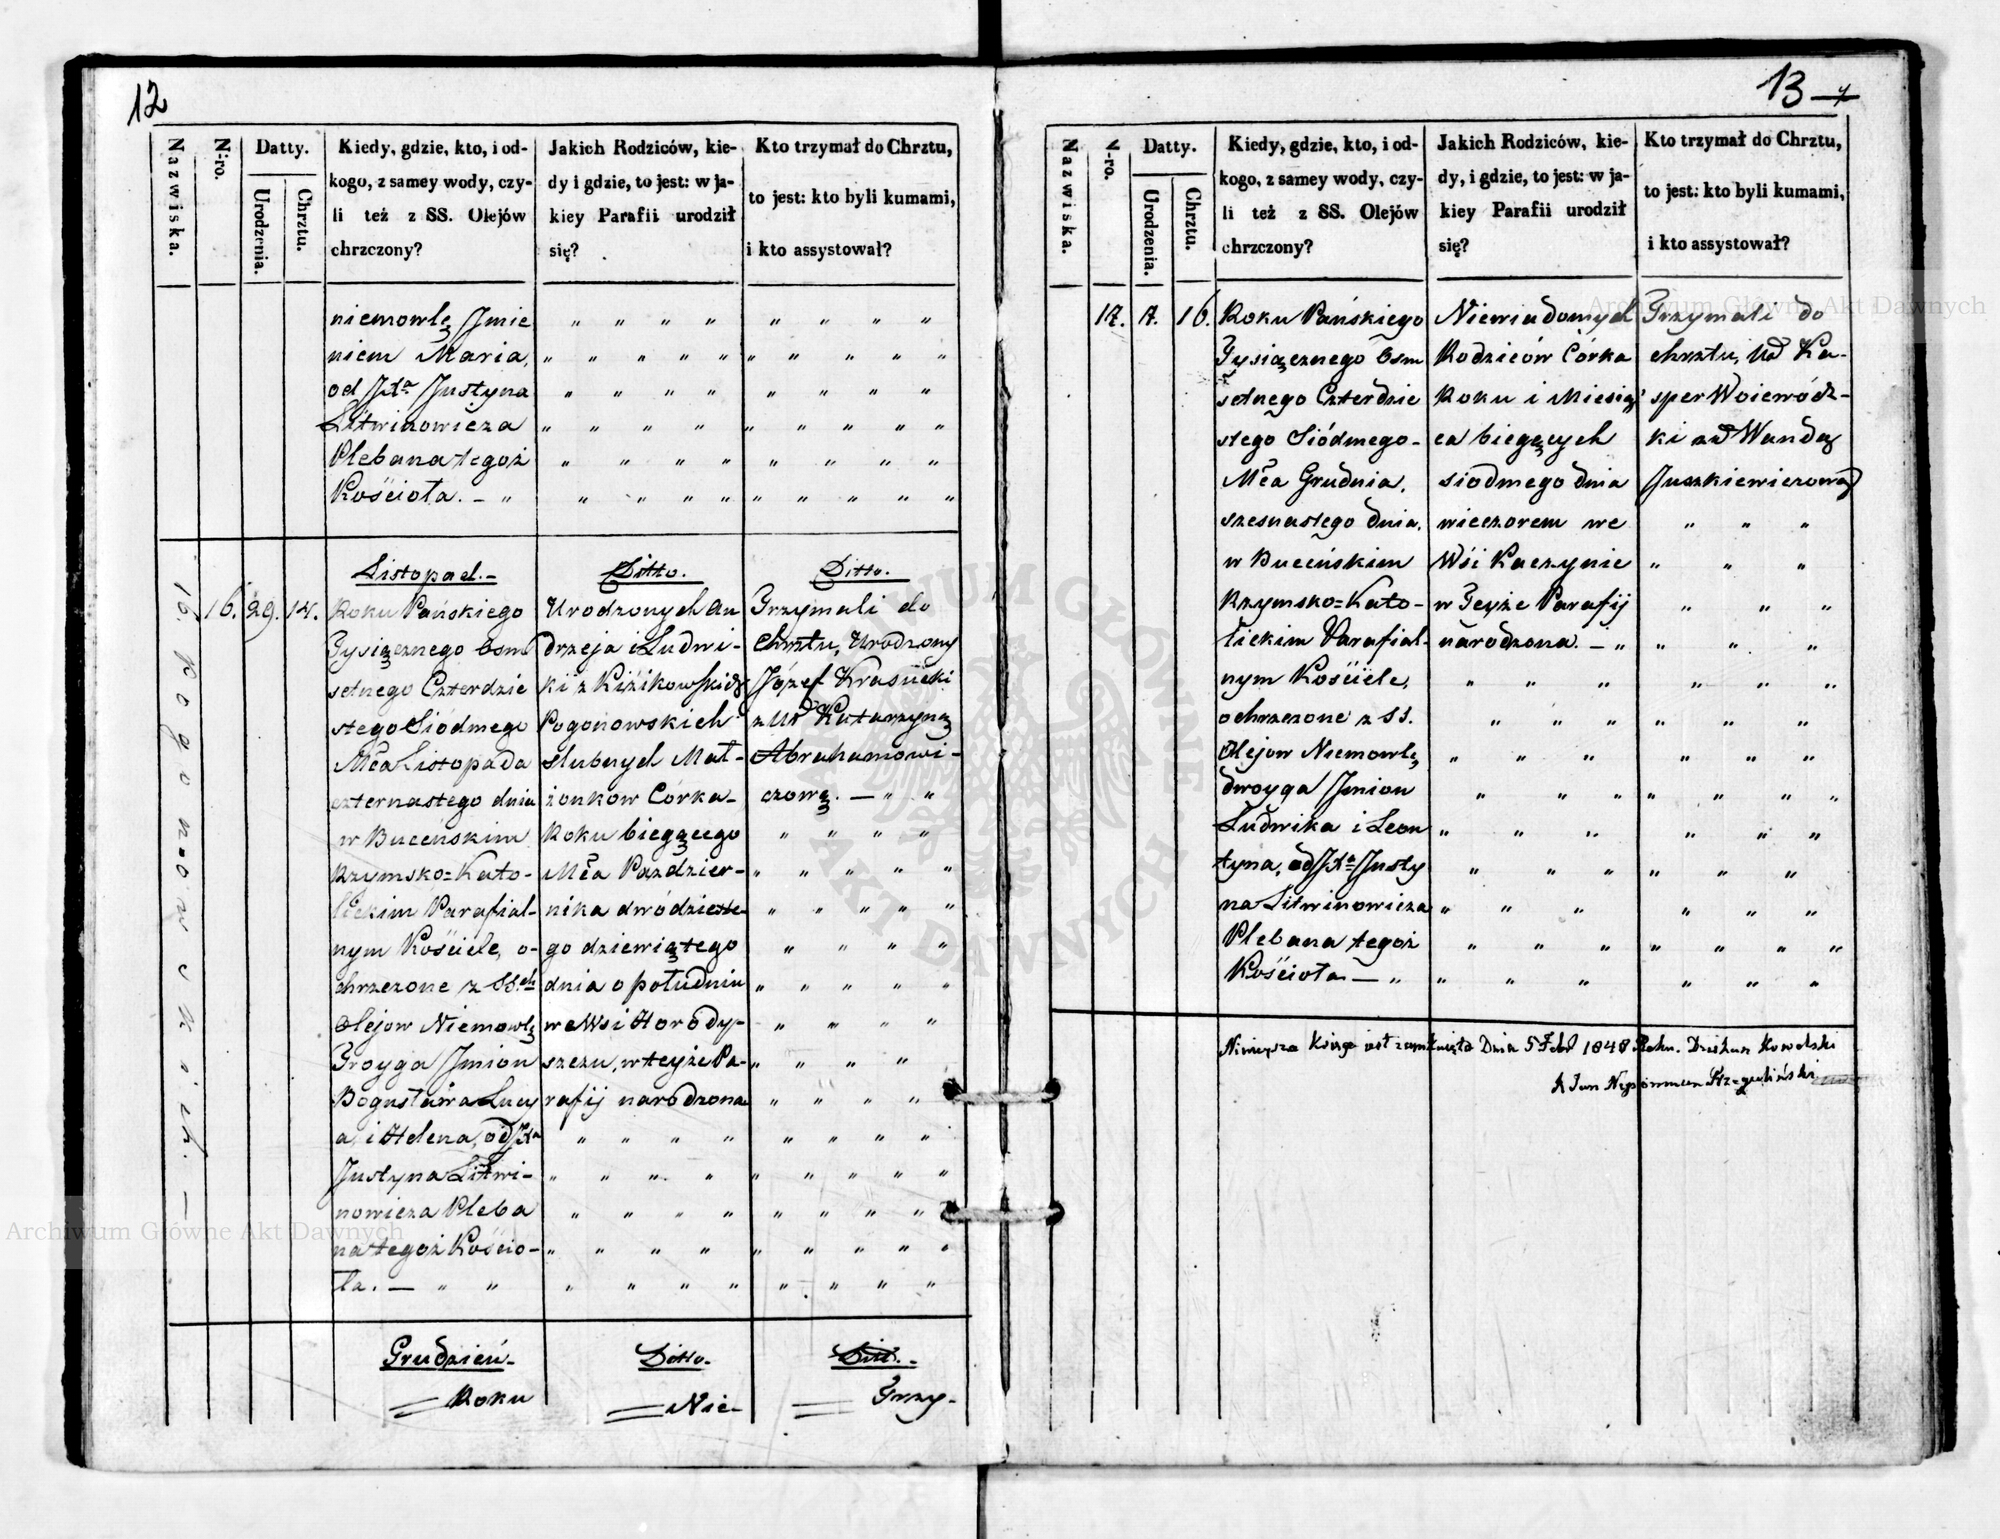 12
Nazwiska.
N-ro.
Datty.
Urodzenia.
Chrztu.
Kiedy, gdzie, kto, i od-
kogo, z samey wody, czy-
li też z SS. Olejów
chrzczony?
Jakich Rodziców, kie-
dy i gdzie, to jest: w ja-
kiey Parafii urodził
się?
Kto trzymał do Chrztu,
to jest: kto byli kumami,
i kto assystował?
niemowlę Jmie
niem Maria,
od JXa Justyna
Litwinowicza
Plebana tegoż
Kościoła. — „
16. Pogonowskich. —
16. 29. 14.
Listopad.-
Roku Pańskiego
Tysiącznego Osm
setnego Czterdzie
stego Siódmego
Mca Listopada
czternastego dnia
w Buceńskim
Rzymsko=Kato-
lickim Parafial-
nym Kościele, o-
chrzczone z SS.ch
Olejow Niemowlę
Troyga Jmion
Bogusława Lucy
a, i Helena, od JXa
Justyna Litwi-
nowicza Pleba
na tegoż Kościo-
ła. — „ „
Ditto.
Urodzonych An
drzeja i Ludwi-
ki z Kiżikowskich
Pogonowskich
slubnych Mał-
żonkow Córka-
Roku biegącego
Mca Paździer-
nika dwódzieste-
go dziewiątego
dnia o południu
we Wsi Horody-
szczu, w teyże Pa-
rafij narodzona
Ditto.
Trzymali do
Chrztu, Urodzony
Józef Krasucki
z Ur Katarzyną
Abrahamowi-
czową. — „ „
Grudzień-
Roku
Ditto.
Nie-
Ditt.-
Trzy-
13
Nazwiska.
N-ro.
Datty.
Urodzenia.
Chrztu.
Kiedy, gdzie, kto, i od-
kogo, z samey wody, czy-
li też z SS. Olejów
chrzczony?
Jakich Rodziców, kie-
dy, i gdzie, to jest: w ja-
kiey Parafii urodził
się?
Kto trzymał do Chrztu,
to jest: kto byli kumami,
i kto assystował?
17. 7. 16.
Roku Pańskiego
Tysiącznego Osm
setnego Czterdzie
stego Siódmego-
Mca Grudnia,
szesnastego dnia,
w Buceńskim
Rzymsko=Kato-
lickim Parafial-
nym Kościele,
ochrzczone z SS.
Olejow Niemowlę
dwoyga Jmion
Ludwika i Leon
tyna, od JXa Justy
na Litwinowicza
Plebana tegoż
Kościoła — „
Niewiadomych
Rodziców Córka
Roku i Miesią
ca biegących
siodmego dnia
wieczorem we
Wsi Kaczynie
w Teyże Parafij
narodzona. — „
Trzymali do
chrztu, Ur Ka-
sper Woiewódz-
ki z Wandą
Juszkiewiczową
Ninieysza Księga jest zamknięta Dnia 5 Febr 1848 Roku. Dziekan Kowelski
X Jan Nepomucen
Archiwum Główne Akt Dawnych
Archiwum Główne Akt Dawnych
ARCHIWUM GŁÓWNE AKT DAWNYCH